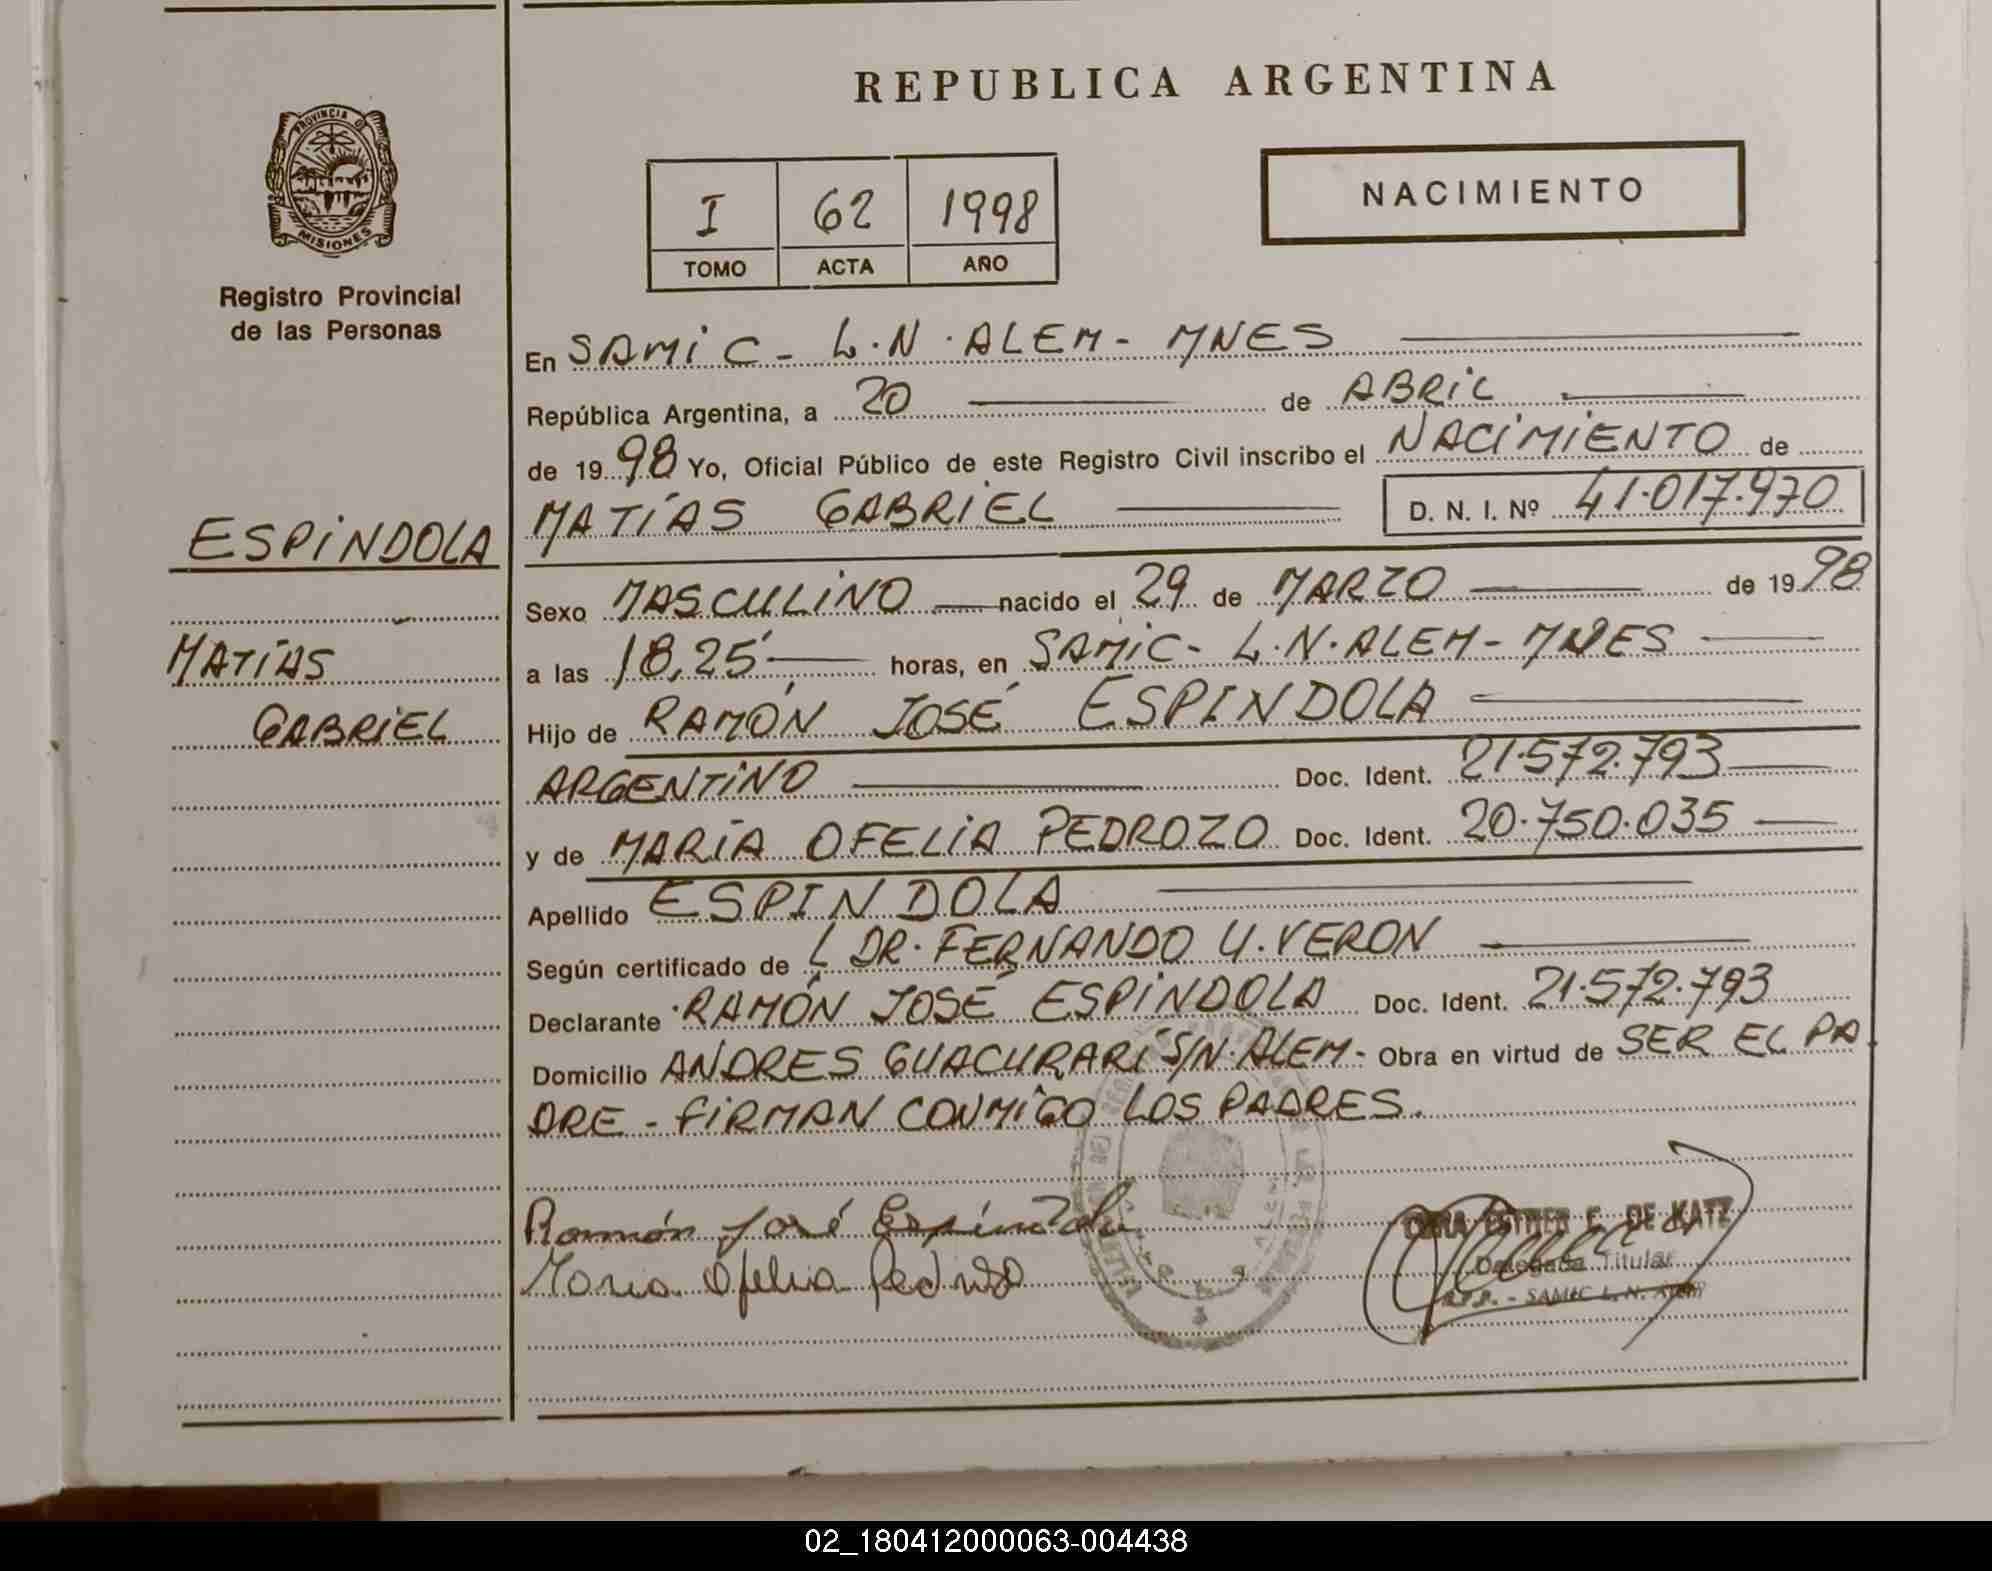 REPUBLICA ARGENTINA
PROVINCIA D
MISIONES
Registro Provincial
de las Personas
I 62 1998
TOMO ACTA AÑO
NACIMIENTO
En SAMIC - L.N. ALEM - MNES
República Argentina, a 20 de ABRIL
de 19 98 Yo, Oficial Público de este Registro Civil inscribo el NACIMIENTO de
MATÍAS GABRIEL D. N. I. Nº 41.017.970
ESPINDOLA
MATÍAS
GABRIEL
Sexo MASCULINO nacido el 29 de MARZO de 19 98
a las 18,25 horas, en SAMIC - L.N. ALEM - MNES
Hijo de RAMÓN JOSÉ ESPINDOLA
ARGENTINO Doc. Ident. 21.572.793
y de MARÍA OFELIA PEDROZO Doc. Ident. 20.750.035
Apellido ESPINDOLA
Según certificado de L DR. FERNANDO U. VERON
Declarante RAMÓN JOSÉ ESPINDOLA Doc. Ident. 21.572.793
Domicilio ANDRES GUACURARI S/N. ALEM - Obra en virtud de SER EL PA
DRE - FIRMAN CONMIGO LOS PADRES.
Ramón José Espíndola
María Ofelia Pedrozo
ESTHER F. DE KATZ
Delegada Titular
R.P.P. - SAMIC L. N. Alem
02_180412000063-004438